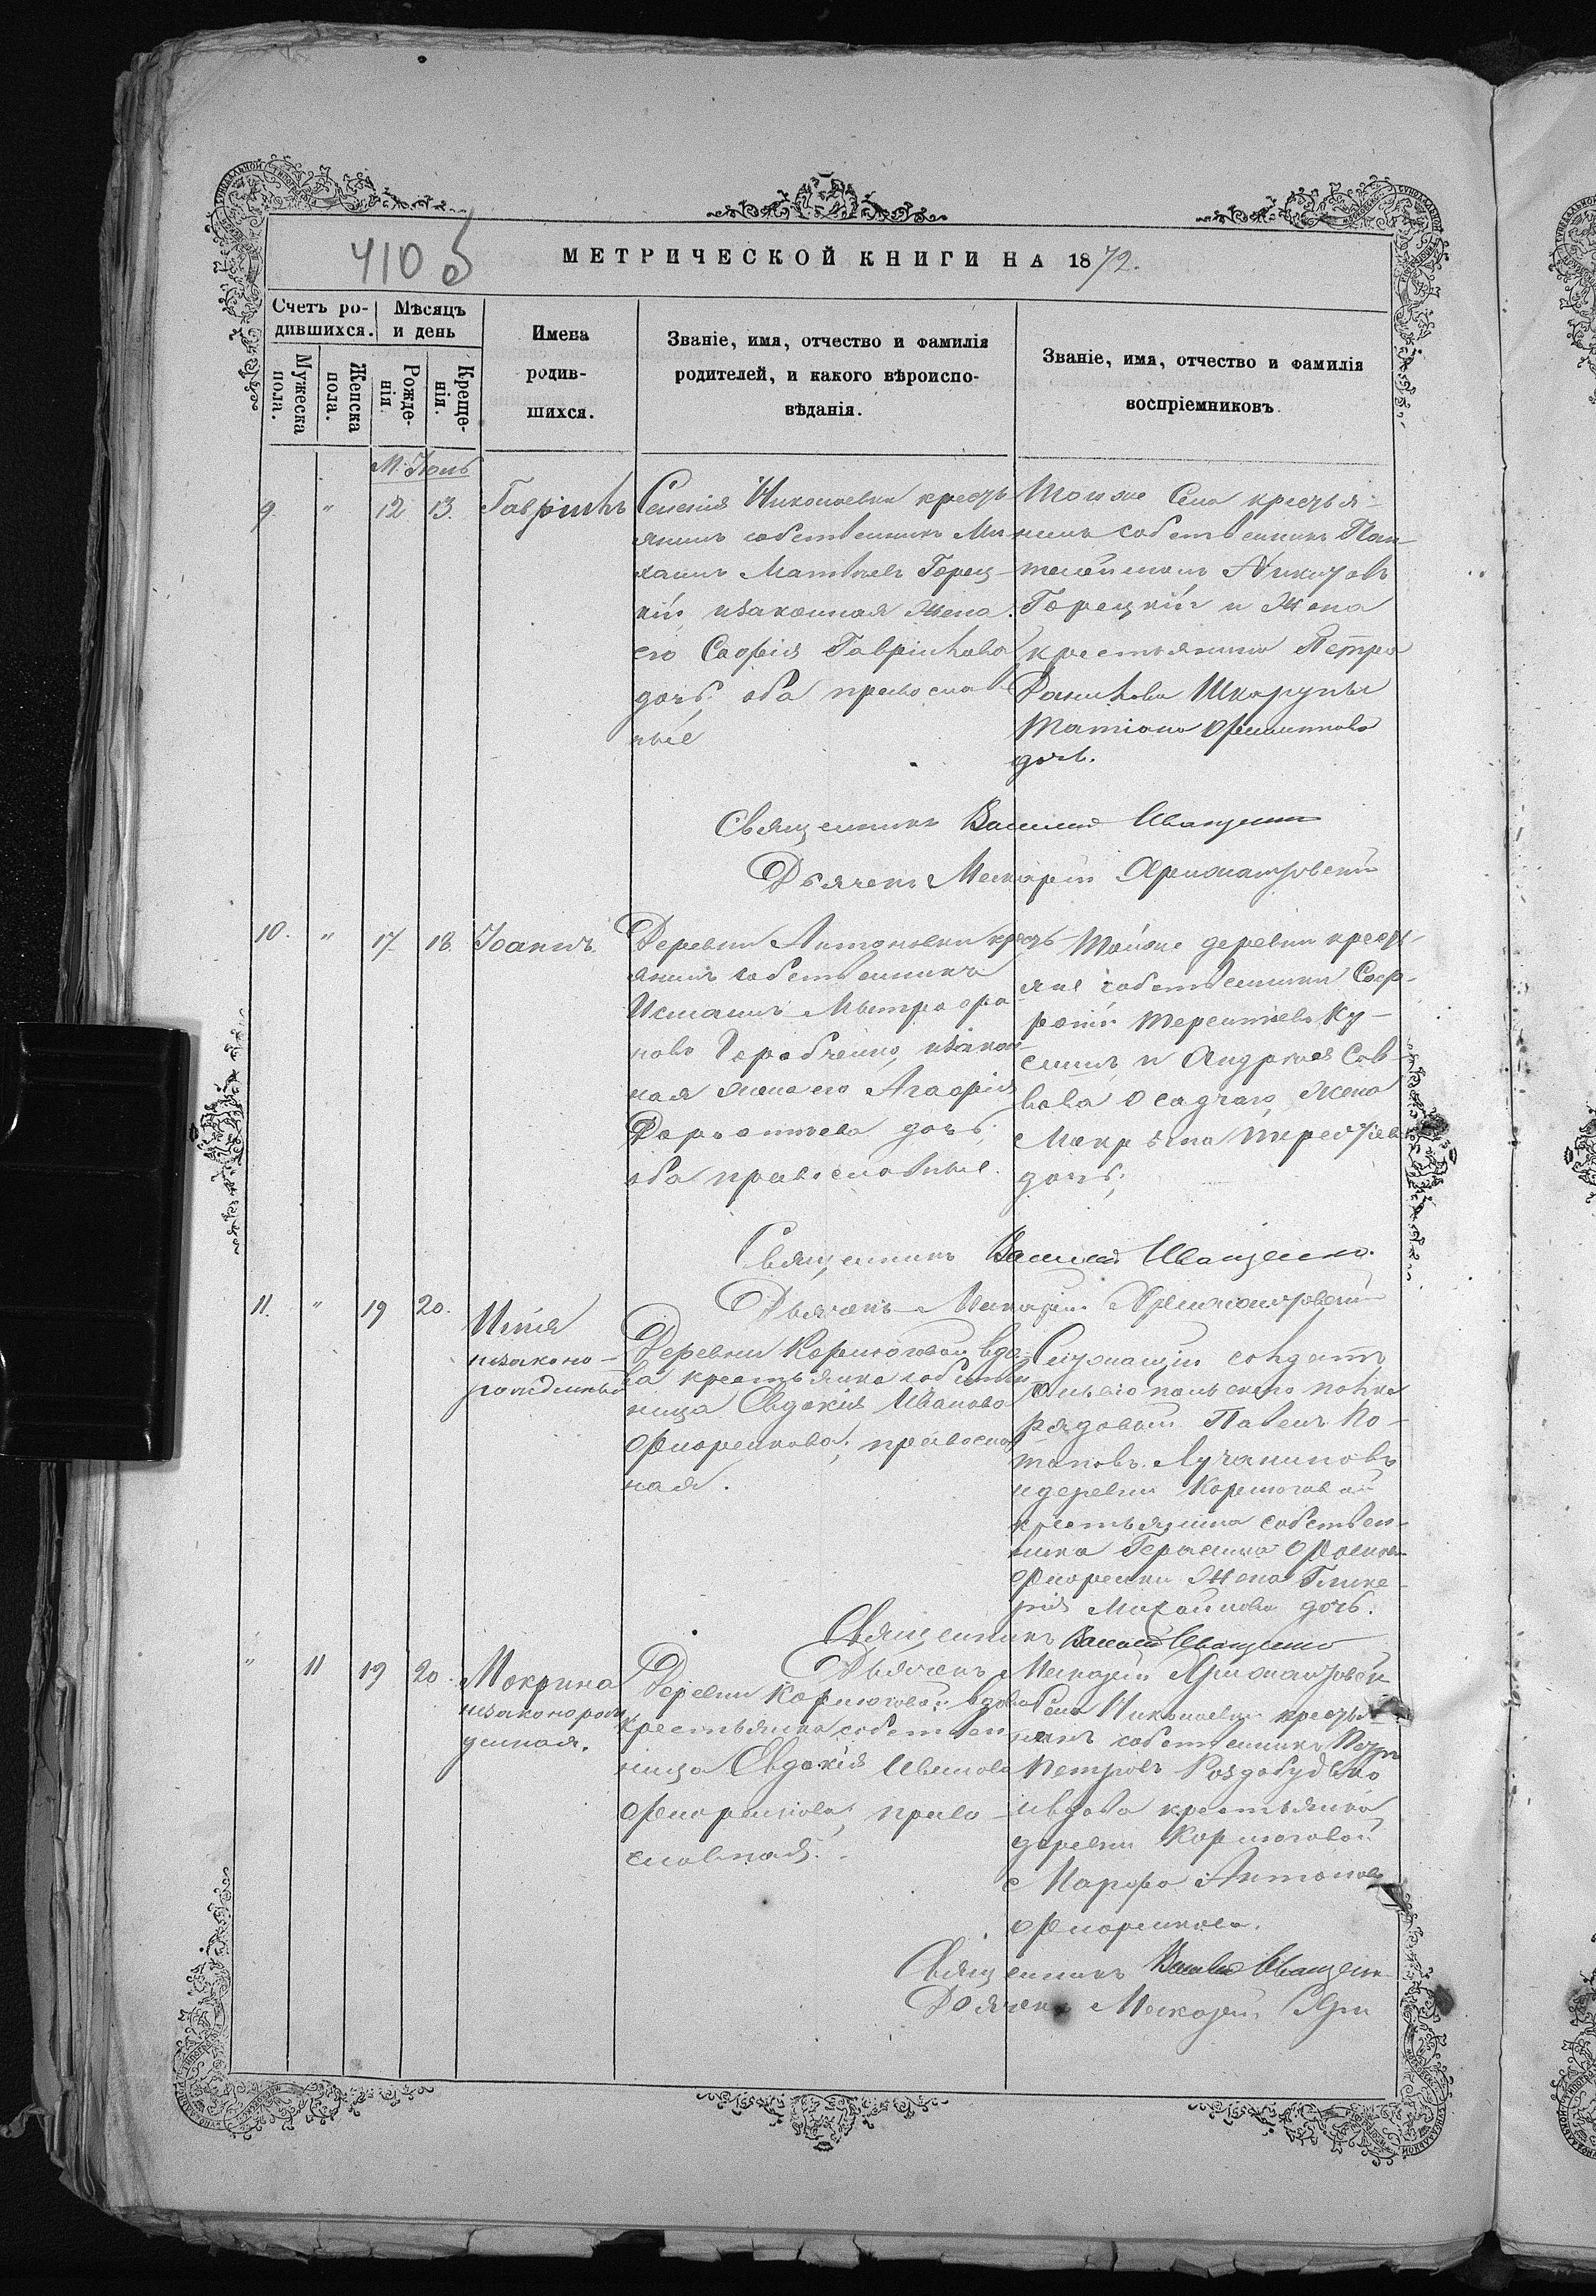 410 б
МЕТРИЧЕСКОЙ КНИГИ НА 1872.
Счетъ ро-
дившихся.
Мѣсяцъ
и день
Мужеска
пола.
Женска
пола.
Рожде-
нія.
Креще-
нія.
Имена
родив-
шихся.
Званіе, имя, отчество и фамилія
родителей, и какого вѣроиспо-
вѣданія.
Званіе, имя, отчество и фамилія
воспріемниковъ
М. Іюль
9. " 12 13. Гавріилъ
Николаевки крестъ
янинъ собственникъ Ми
хаилъ Матвѣевъ Горец-
кій, изаконная жена
его Софія Гавріилова
дочь; оба православ
ные
Тогоже Села крестья-
нинъ собственникъ Пан
телеймонъ
Горецкій и Жена
крестьянина Петра
Данилова Шкарупы
Татіана Филиппова
дочь.
Священникъ Василій Иващенко
Дьячекъ Макарій
10. " 17 18. Іоаннъ
Деревни Антоновки крестъ
янинъ собственникъ
Митрофа
новъ Горобченко, изакон
ная жена его Агафія
дочь;
оба православные.
Тойже деревни кресть
яне собственники Соф
роній Терентіевъ Ку-
и Андрея Сав
вова Осадчаго, жена
Макрина
дочь;
Священникъ Василій Иващенко.
Дьячекъ Макарій
11. " 19 20.
Илія
незаконо-
рожденный
Деревни Кормоговой вдо
ва крестьянка собствен
ница Евдокія Иванова
Фіоренкова; православ
ная.
Служащій солдатъ
полка
рядовой Павелъ По-
таповъ Лучаниновъ
и деревни Кормоговой
крестьянина собствен-
ника Герасима
Фіоренки Жена Глике-
рія Михайлова дочь.
Священникъ Василій Иващенко
Дьячекъ Макарій
" 11 19 20. Мокрина
незаконорож
денная.
Деревни Кормоговой вдова
крестьянка собствен
ница Евдокія Иванова
Фіоренкова; право-
славная.
Села Николаевки крестья
нинъ собственникъ Петръ
Петровъ Роздобудько
ивдова крестьянка
деревни Кормоговой
Марфа Антонова
Фіоренкова.
Священникъ Василій Иващенко
Дьячекъ Макарій